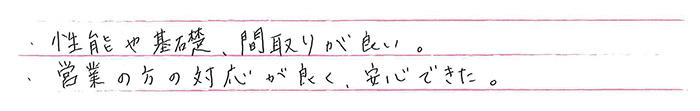 ・性能や基礎、間取りが良い。
・営業の方の対応が良く、安心できた。